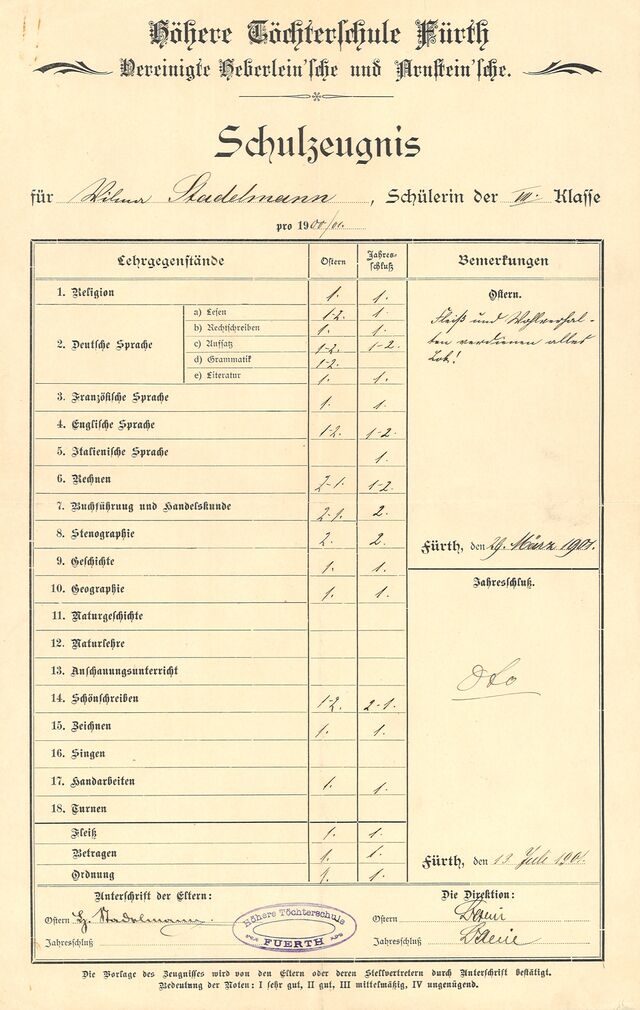 Höhere Töchterschule Fürth
Vereinigte Heberlein'sche und Arnstein'sche.
Schulzeugnis
für Wilma Stadelmann, Schülerin der VII. Klasse
pro 1900/01.
Lehrgegenstände Ostern Jahres-schluß Bemerkungen
1. Religion 1. 1.
2. Deutsche Sprache
a) Lesen 1-2. 1.
b) Rechtschreiben 1. 1.
c) Aufsatz 1-2. 1-2.
d) Grammatik 1-2.
e) Literatur 1. 1.
3. Französische Sprache 1. 1.
4. Englische Sprache 1-2. 1-2.
5. Italienische Sprache 1.
6. Rechnen 2-1. 1-2.
7. Buchführung und Handelskunde 2-1. 2.
8. Stenographie 2. 2.
9. Geschichte 1. 1.
10. Geographie 1. 1.
11. Naturgeschichte
12. Naturlehre
13. Anschauungsunterricht
14. Schönschreiben 1-2. 2-1.
15. Zeichnen 1. 1.
16. Singen
17. Handarbeiten 1. 1.
18. Turnen
Fleiß 1. 1.
Betragen 1. 1.
Ordnung 1. 1.
Ostern.
Fleiß und Wohlverhal-
ten verdienen alles
Lob!
Fürth, den 29. März 1901.
Jahresschluß.
Dto
Fürth, den 13. Juli 1901.
Unterschrift der Eltern:
Ostern Stadelmann.
Jahresschluß
Höhere Töchterschule
FUERTH
Die Direktion:
Ostern
Jahresschluß
Die Vorlage des Zeugnisses wird von den Eltern oder deren Stellvertretern durch Unterschrift bestätigt.
Bedeutung der Noten: I sehr gut, II gut, III mittelmäßig, IV ungenügend.